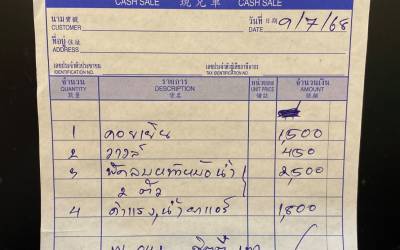 CASH SALE 現兌單 CASH SALE
นาม 寶號
CUSTOMER
วันที่ 日期
DATE 9/7/68
ที่อยู่ 住址
ADDRESS
เลขประจำตัวประชาชน
IDENTIFICATION NO.
เลขประจำตัวผู้เสียภาษีอากร
TAX IDENTIFICATION NO.
จำนวน รายการ หน่วยละ จำนวนเงิน
QUANTITY DESCRIPTION UNIT PRICE AMOUNT
數量
1 คอยเย็น 1,500
2 วาวล์ 450
3 พัดลมหน้าหม้อน้ำ 2,500
2 ตัว
4 ค่าแรง, น้ำยาแอร์ 1,800